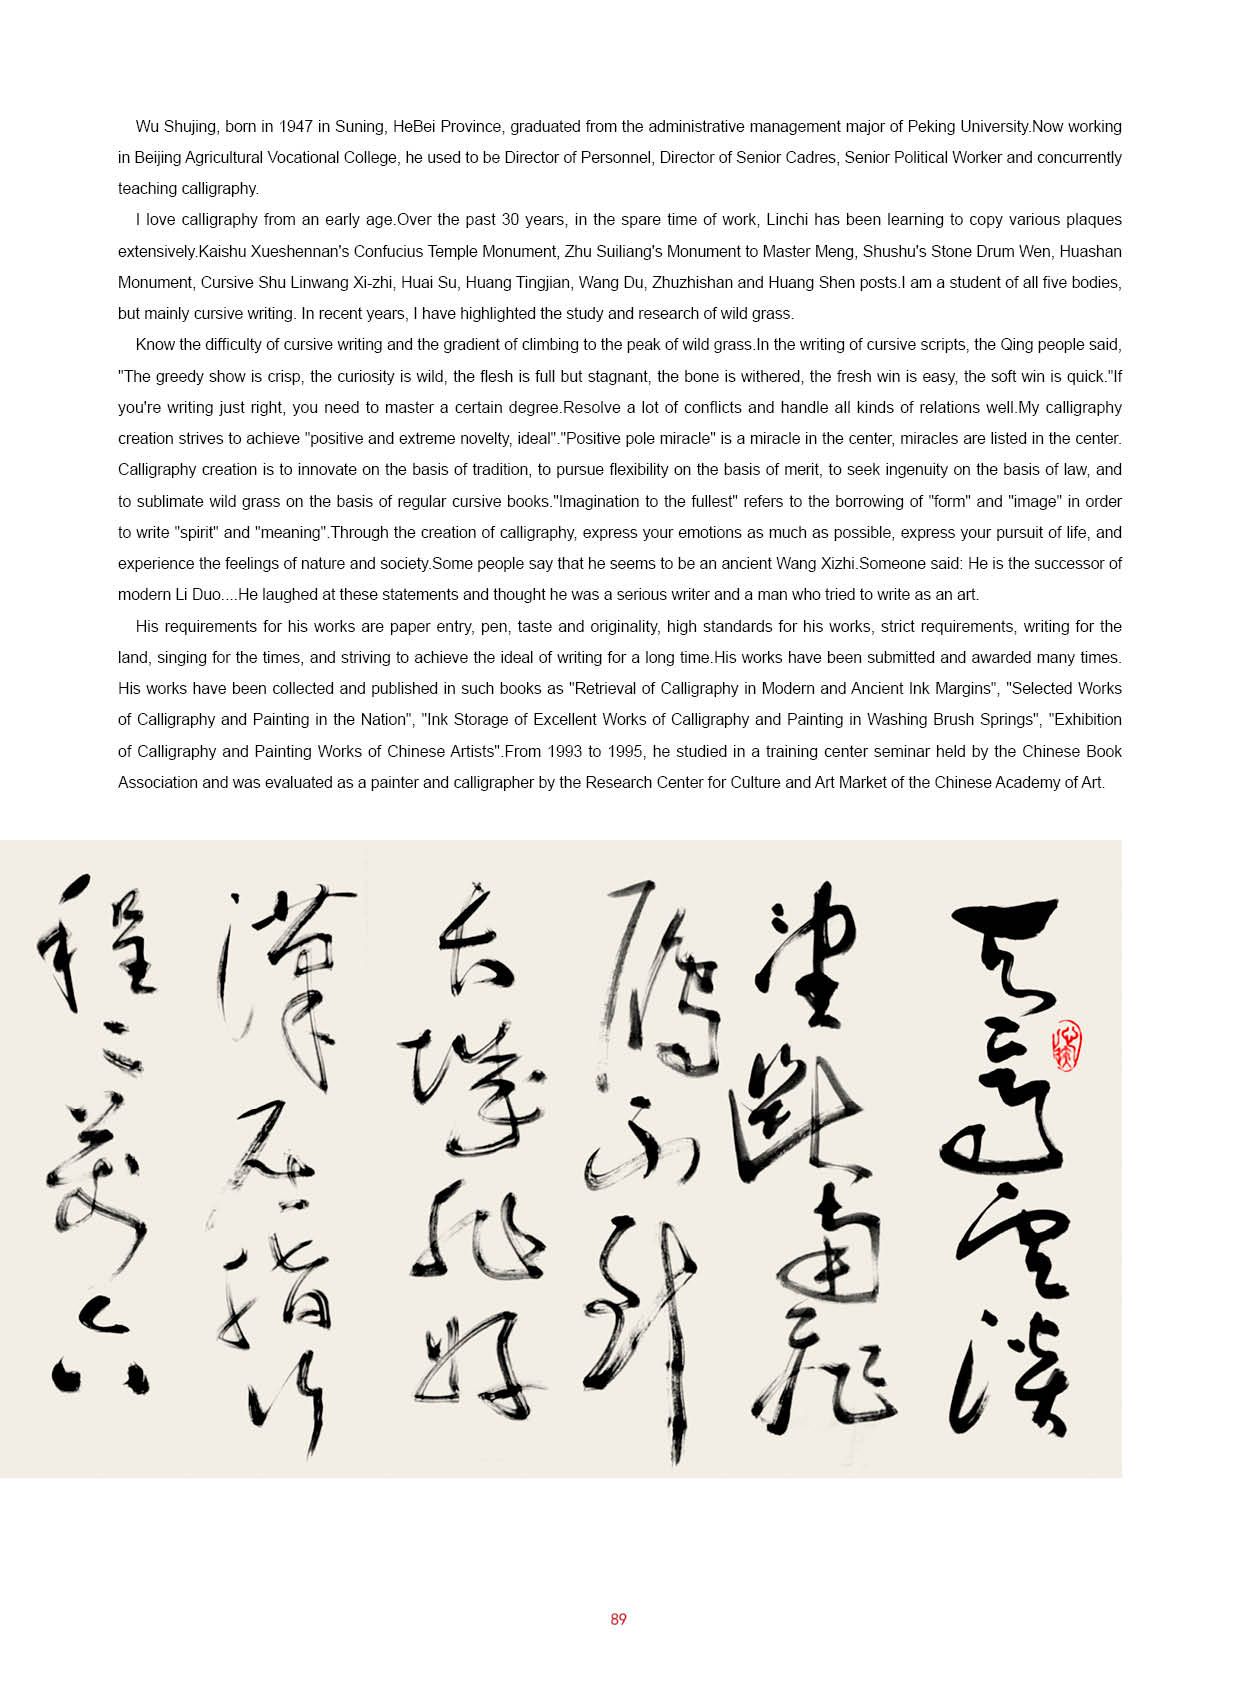 Wu Shujing, born in 1947 in Suning, HeBei Province, graduated from the administrative management major of Peking University.Now working
in Beijing Agricultural Vocational College, he used to be Director of Personnel, Director of Senior Cadres, Senior Political Worker and concurrently
teaching calligraphy.
I love calligraphy from an early age.Over the past 30 years, in the spare time of work, Linchi has been learning to copy various plaques
extensively.Kaishu Xueshennan's Confucius Temple Monument, Zhu Suiliang's Monument to Master Meng, Shushu's Stone Drum Wen, Huashan
Monument, Cursive Shu Linwang Xi-zhi, Huai Su, Huang Tingjian, Wang Du, Zhuzhishan and Huang Shen posts.I am a student of all five bodies,
but mainly cursive writing. In recent years, I have highlighted the study and research of wild grass.
Know the difficulty of cursive writing and the gradient of climbing to the peak of wild grass.In the writing of cursive scripts, the Qing people said,
"The greedy show is crisp, the curiosity is wild, the flesh is full but stagnant, the bone is withered, the fresh win is easy, the soft win is quick."If
you're writing just right, you need to master a certain degree.Resolve a lot of conflicts and handle all kinds of relations well.My calligraphy
creation strives to achieve "positive and extreme novelty, ideal"."Positive pole miracle" is a miracle in the center, miracles are listed in the center.
Calligraphy creation is to innovate on the basis of tradition, to pursue flexibility on the basis of merit, to seek ingenuity on the basis of law, and
to sublimate wild grass on the basis of regular cursive books."Imagination to the fullest" refers to the borrowing of "form" and "image" in order
to write "spirit" and "meaning".Through the creation of calligraphy, express your emotions as much as possible, express your pursuit of life, and
experience the feelings of nature and society.Some people say that he seems to be an ancient Wang Xizhi.Someone said: He is the successor of
modern Li Duo....He laughed at these statements and thought he was a serious writer and a man who tried to write as an art.
His requirements for his works are paper entry, pen, taste and originality, high standards for his works, strict requirements, writing for the
land, singing for the times, and striving to achieve the ideal of writing for a long time.His works have been submitted and awarded many times.
His works have been collected and published in such books as "Retrieval of Calligraphy in Modern and Ancient Ink Margins", "Selected Works
of Calligraphy and Painting in the Nation", "Ink Storage of Excellent Works of Calligraphy and Painting in Washing Brush Springs", "Exhibition
of Calligraphy and Painting Works of Chinese Artists".From 1993 to 1995, he studied in a training center seminar held by the Chinese Book
Association and was evaluated as a painter and calligrapher by the Research Center for Culture and Art Market of the Chinese Academy of Art.
天高雲淡
望斷南飛
雁不到
長城非好
漢屈指行
程二萬六
89